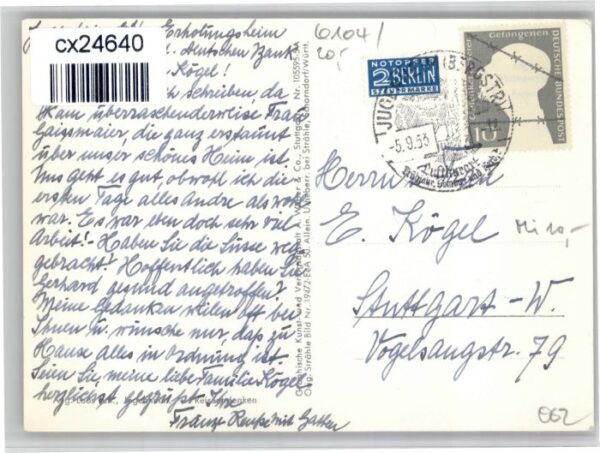 cx24640
Erholungsheim
deutschen Bank
Kögel!
schreiben, da
kam überraschenderweise Frau
Gaissmaier, die ganz erstaunt
über unser schönes Heim ist.
Uns geht es gut, obwohl ich die
ersten Tage alles Andre als wohl
war. Es war eben doch sehr viel
Arbeit! Haben Sie die Süsse weg
gebracht? Hoffentlich haben Sie
Gerhard gesund angetroffen?
Meine Gedanken weilen oft bei
Ihnen u. wünsche nur, daß zu
Hause alles in Ordnung ist.
Seien Sie, meine liebe Familie Kögel
herzlichst gegrüßt Ihre
mit Gatten
6104/
20,-
NOTOPFER
2 BERLIN
STEUERMARKE
-5.9.53
Luftkurort
Gefangenen
DEUTSCHE BUNDESPOST
10
Herrn
E. Kögel
Stuttgart-W.
Vogelsangstr. 79
Mi 10,-
662
Graphische Kunst- und Verlagsanstalt
Stuttgart
Nr. 105595-9A
Orig.-Strähle Bild Nr.
Allein. Luftbildherr. bei Strähle, Schorndorf/Württ.
Reiseandenken